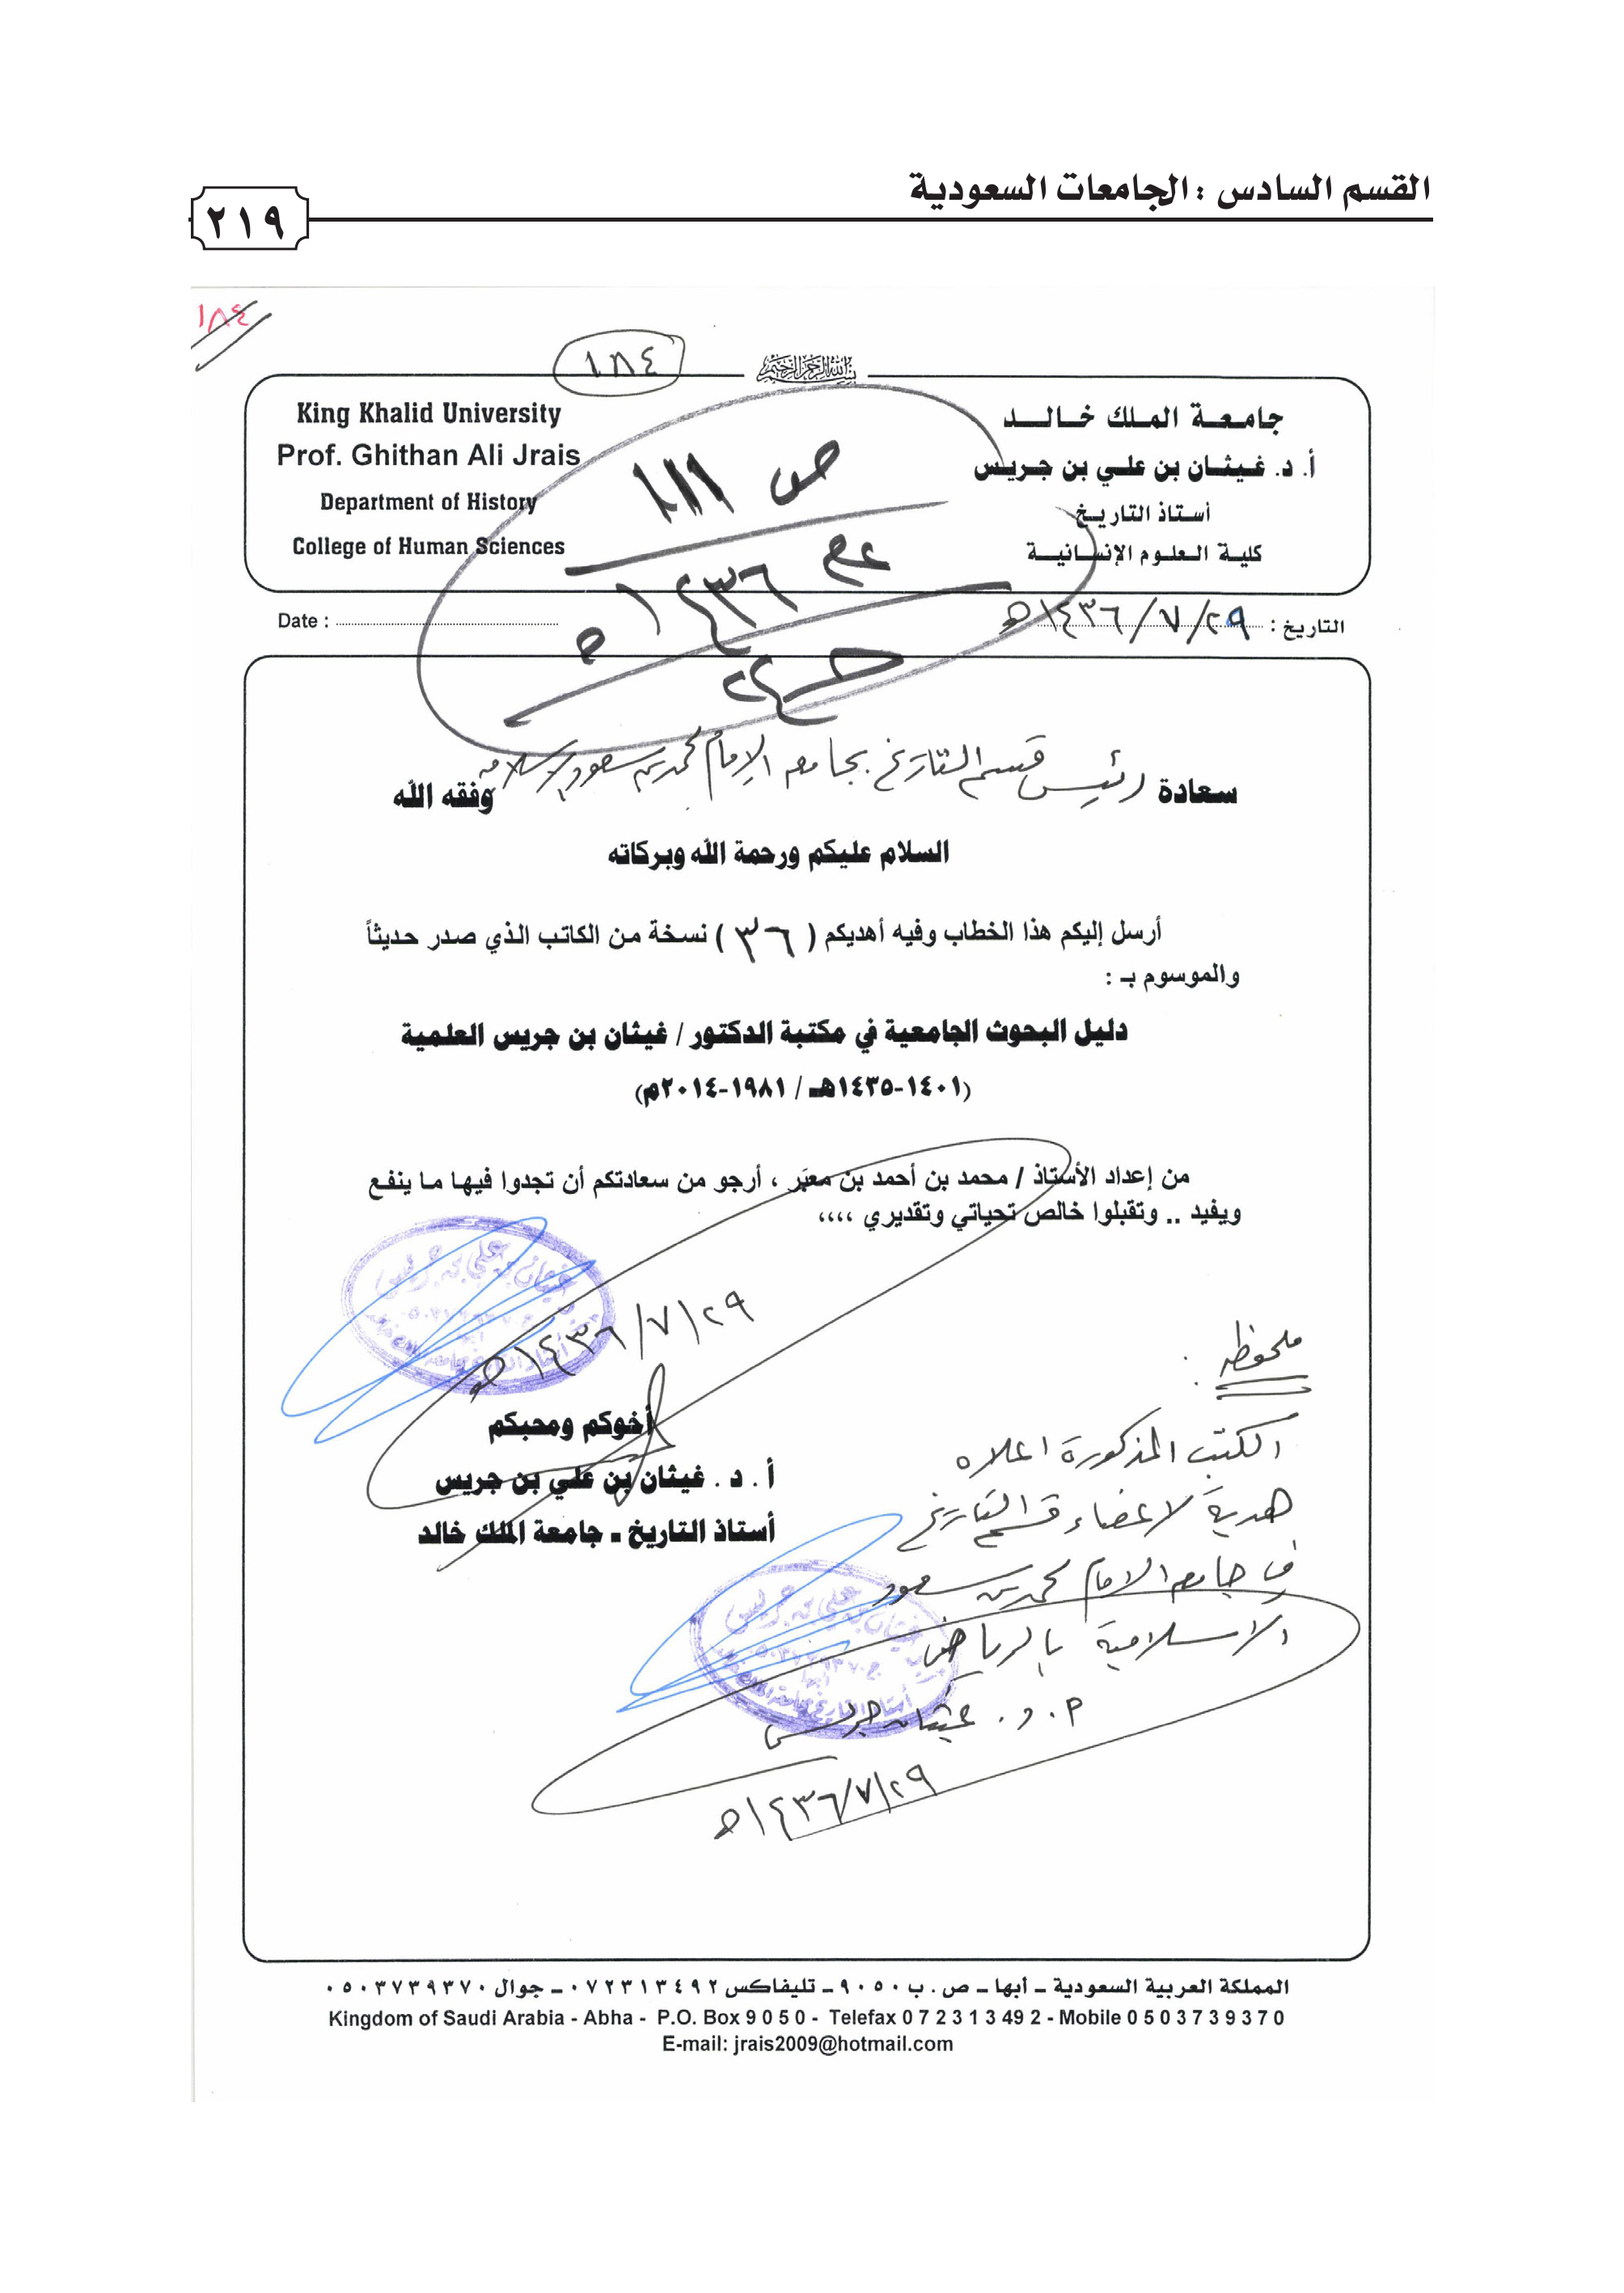 القسم السادس : الجامعات السعودية
٢١٩
١٨٤
١٨٤
بسم الله الرحمن الرحيم
جامعة الملك خالد
أ. د. غيثان بن علي بن جريس
أستاذ التاريخ
كلية العلوم الإنسانية
King Khalid University
Prof. Ghithan Ali Jrais
Department of History
College of Human Sciences
ص
١٤٣٦ هـ
التاريخ : ٢٩/ ٧/ ١٤٣٦هـ
Date :
سعادة رئيس قسم التاريخ بجامعة الإمام محمد بن سعود الإسلامية وفقه الله
السلام عليكم ورحمة الله وبركاته
أرسل إليكم هذا الخطاب وفيه أهديكم ( ٣٦ ) نسخة من الكاتب الذي صدر حديثاً
والموسوم بـ :
دليل البحوث الجامعية في مكتبة الدكتور / غيثان بن جريس العلمية
(١٤٠١-١٤٣٥هـ / ١٩٨١-٢٠١٤م)
من إعداد الأستاذ / محمد بن أحمد بن معبّر ، أرجو من سعادتكم أن تجدوا فيها ما ينفع
ويفيد .. وتقبلوا خالص تحياتي وتقديري ،،،،
غيثان بن علي بن جريس
٢٩/ ٧/ ١٤٣٦هـ
أخوكم ومحبكم
أ . د . غيثان بن علي بن جريس
أستاذ التاريخ ـ جامعة الملك خالد
ملحوظة :
الكتب المذكورة اعلاه
هدية لاعضاء قسم التاريخ
في جامعة الامام محمد بن سعود
الاسلامية بالرياض
غيثان بن علي بن جريس
أ. د. غيثان جريس
٢٩/ ٧/ ١٤٣٦هـ
المملكة العربية السعودية ـ أبها ـ ص . ب ٩٠٥٠ ـ تليفاكس ٠٧٢٣١٣٤٩٢ ـ جوال ٠٥٠٣٧٣٩٣٧٠
Kingdom of Saudi Arabia - Abha - P.O. Box 9 0 5 0 - Telefax 0 7 2 3 1 3 49 2 - Mobile 0 5 0 3 7 3 9 3 7 0
E-mail: jrais2009@hotmail.com